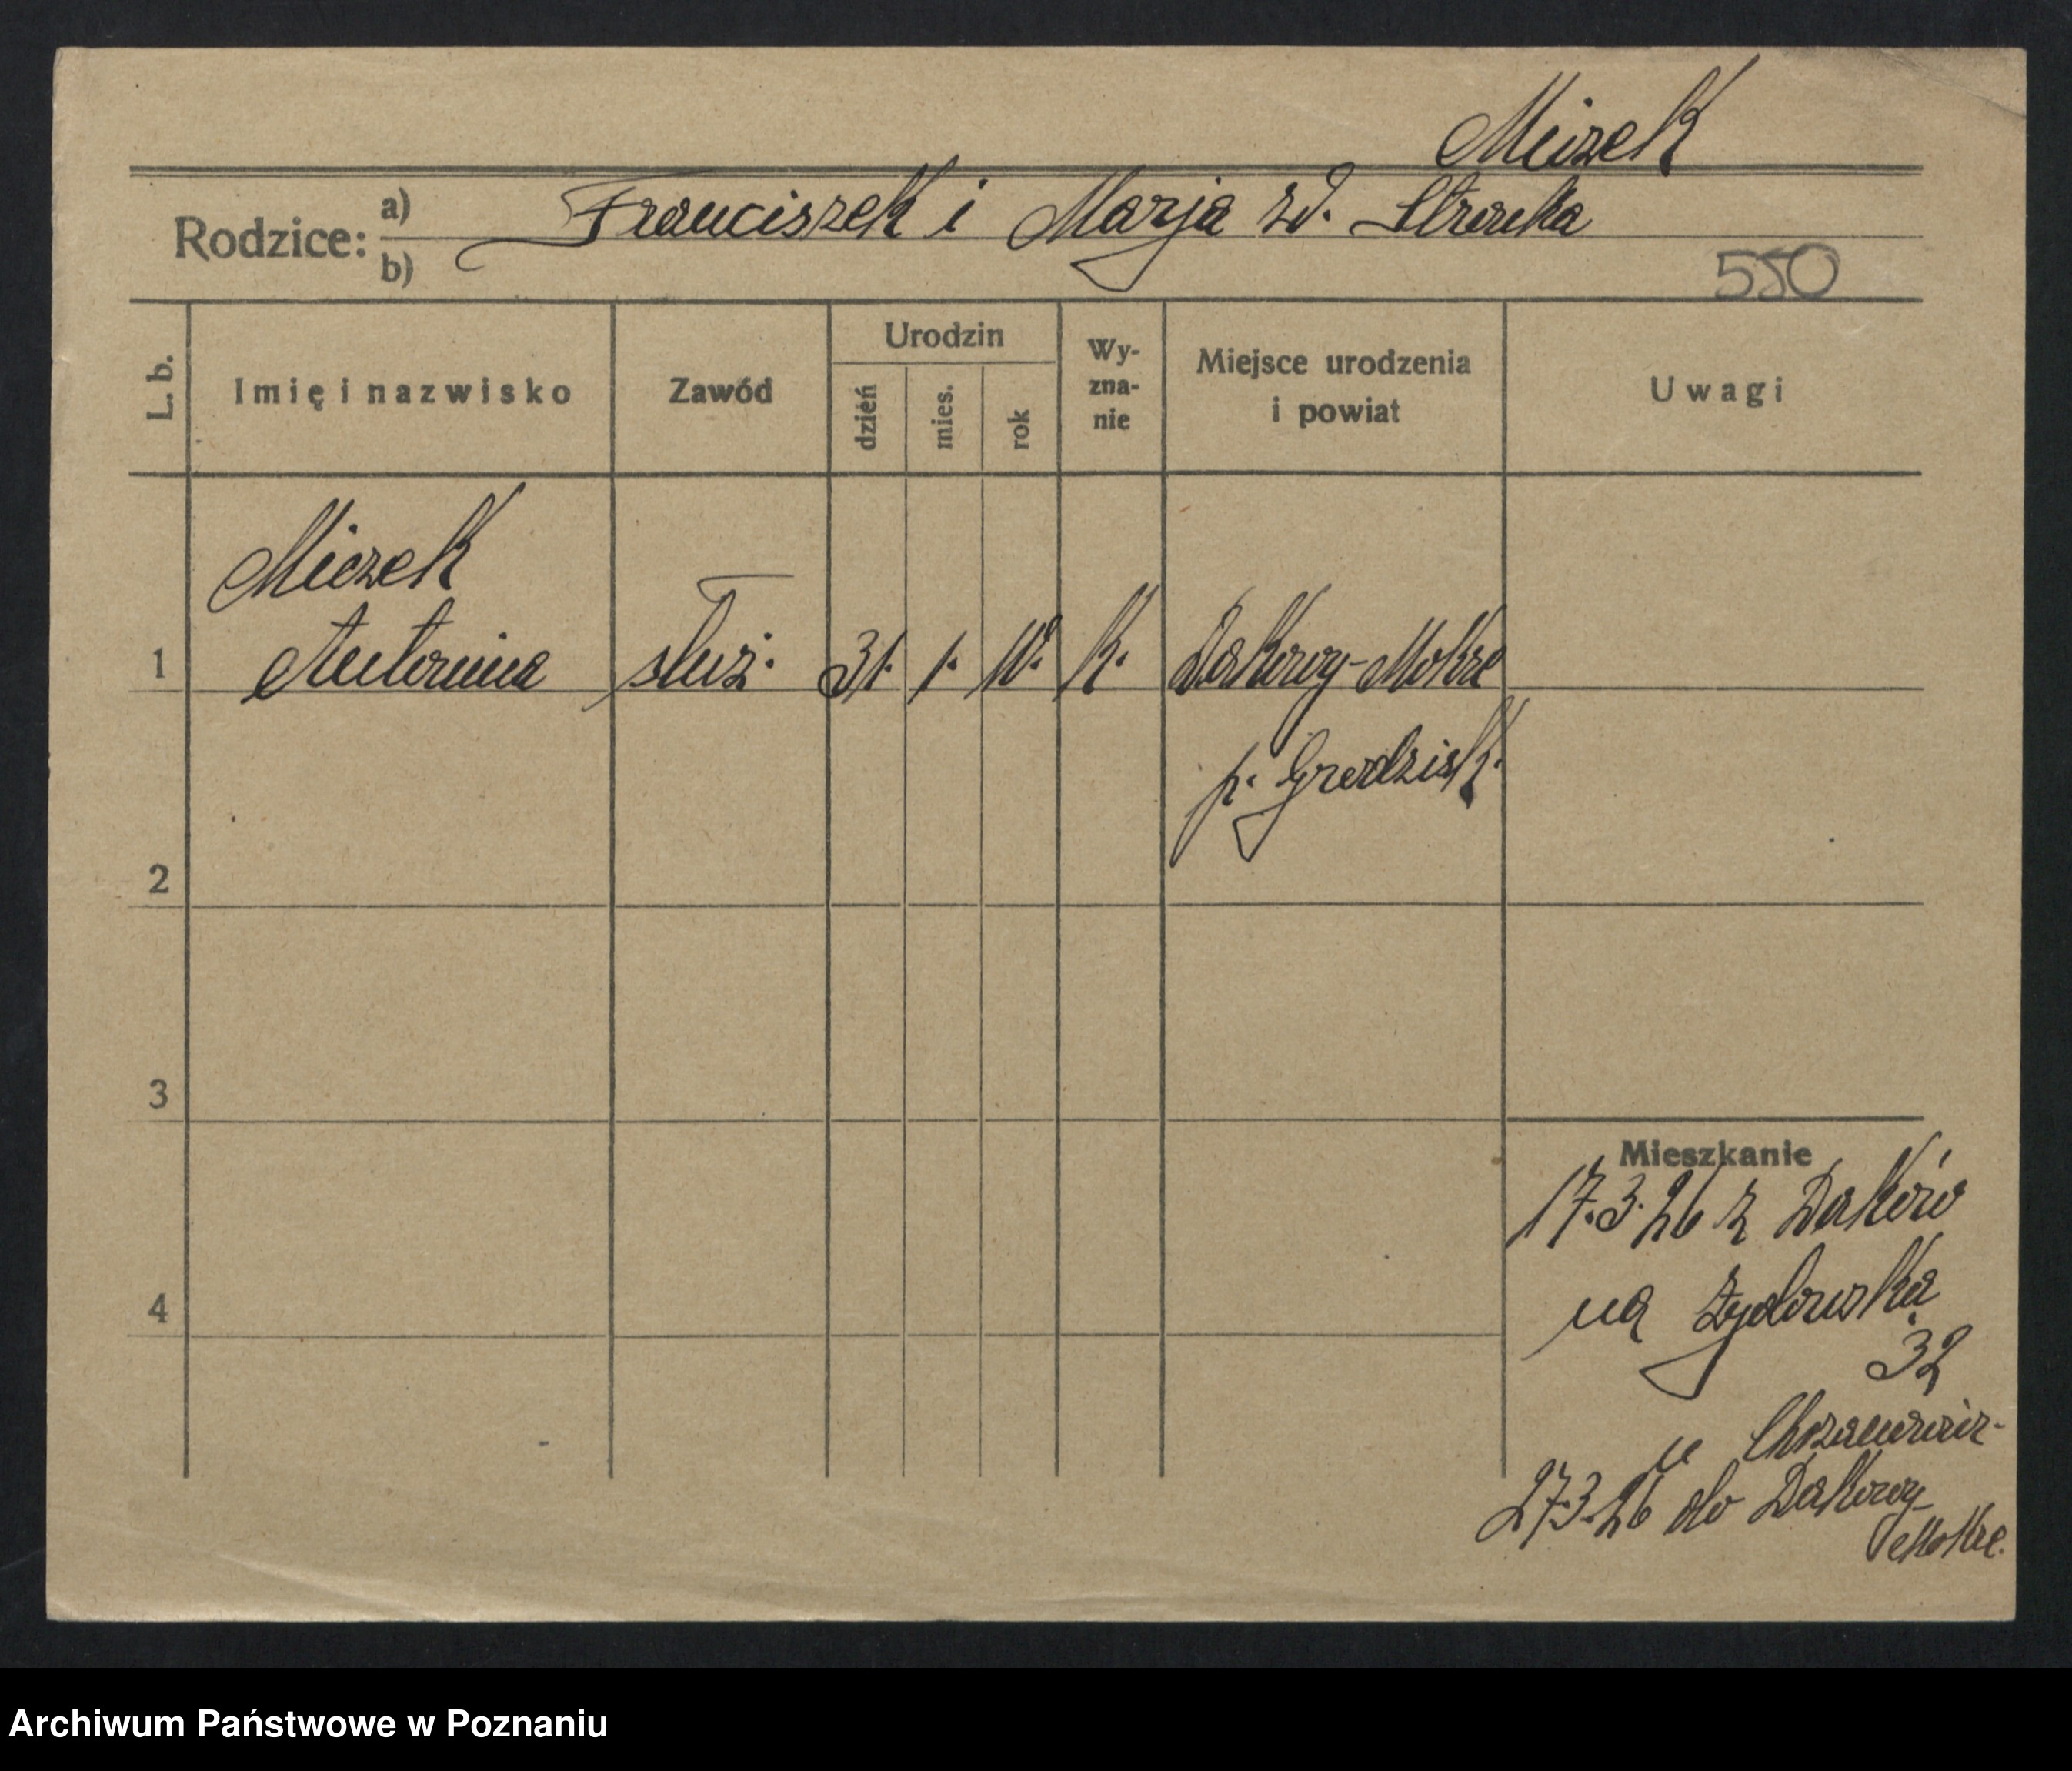 Miczek
Rodzice: a) Franciszek i Marja zd.
b)
550
L. b. Imię i nazwisko Zawód Urodzin dzień mies. rok Wyznanie Miejsce urodzenia i powiat Uwagi
Miczek
1 Antonina służ. 31. 1. 10. k. Dakowy-Mokre
p. Grodzisk.
2
3
Mieszkanie
17.3.26 z Daków
4 na Żydowska
32
u
27.3.26 do Dakowy-
Mokre.
Archiwum Państwowe w Poznaniu